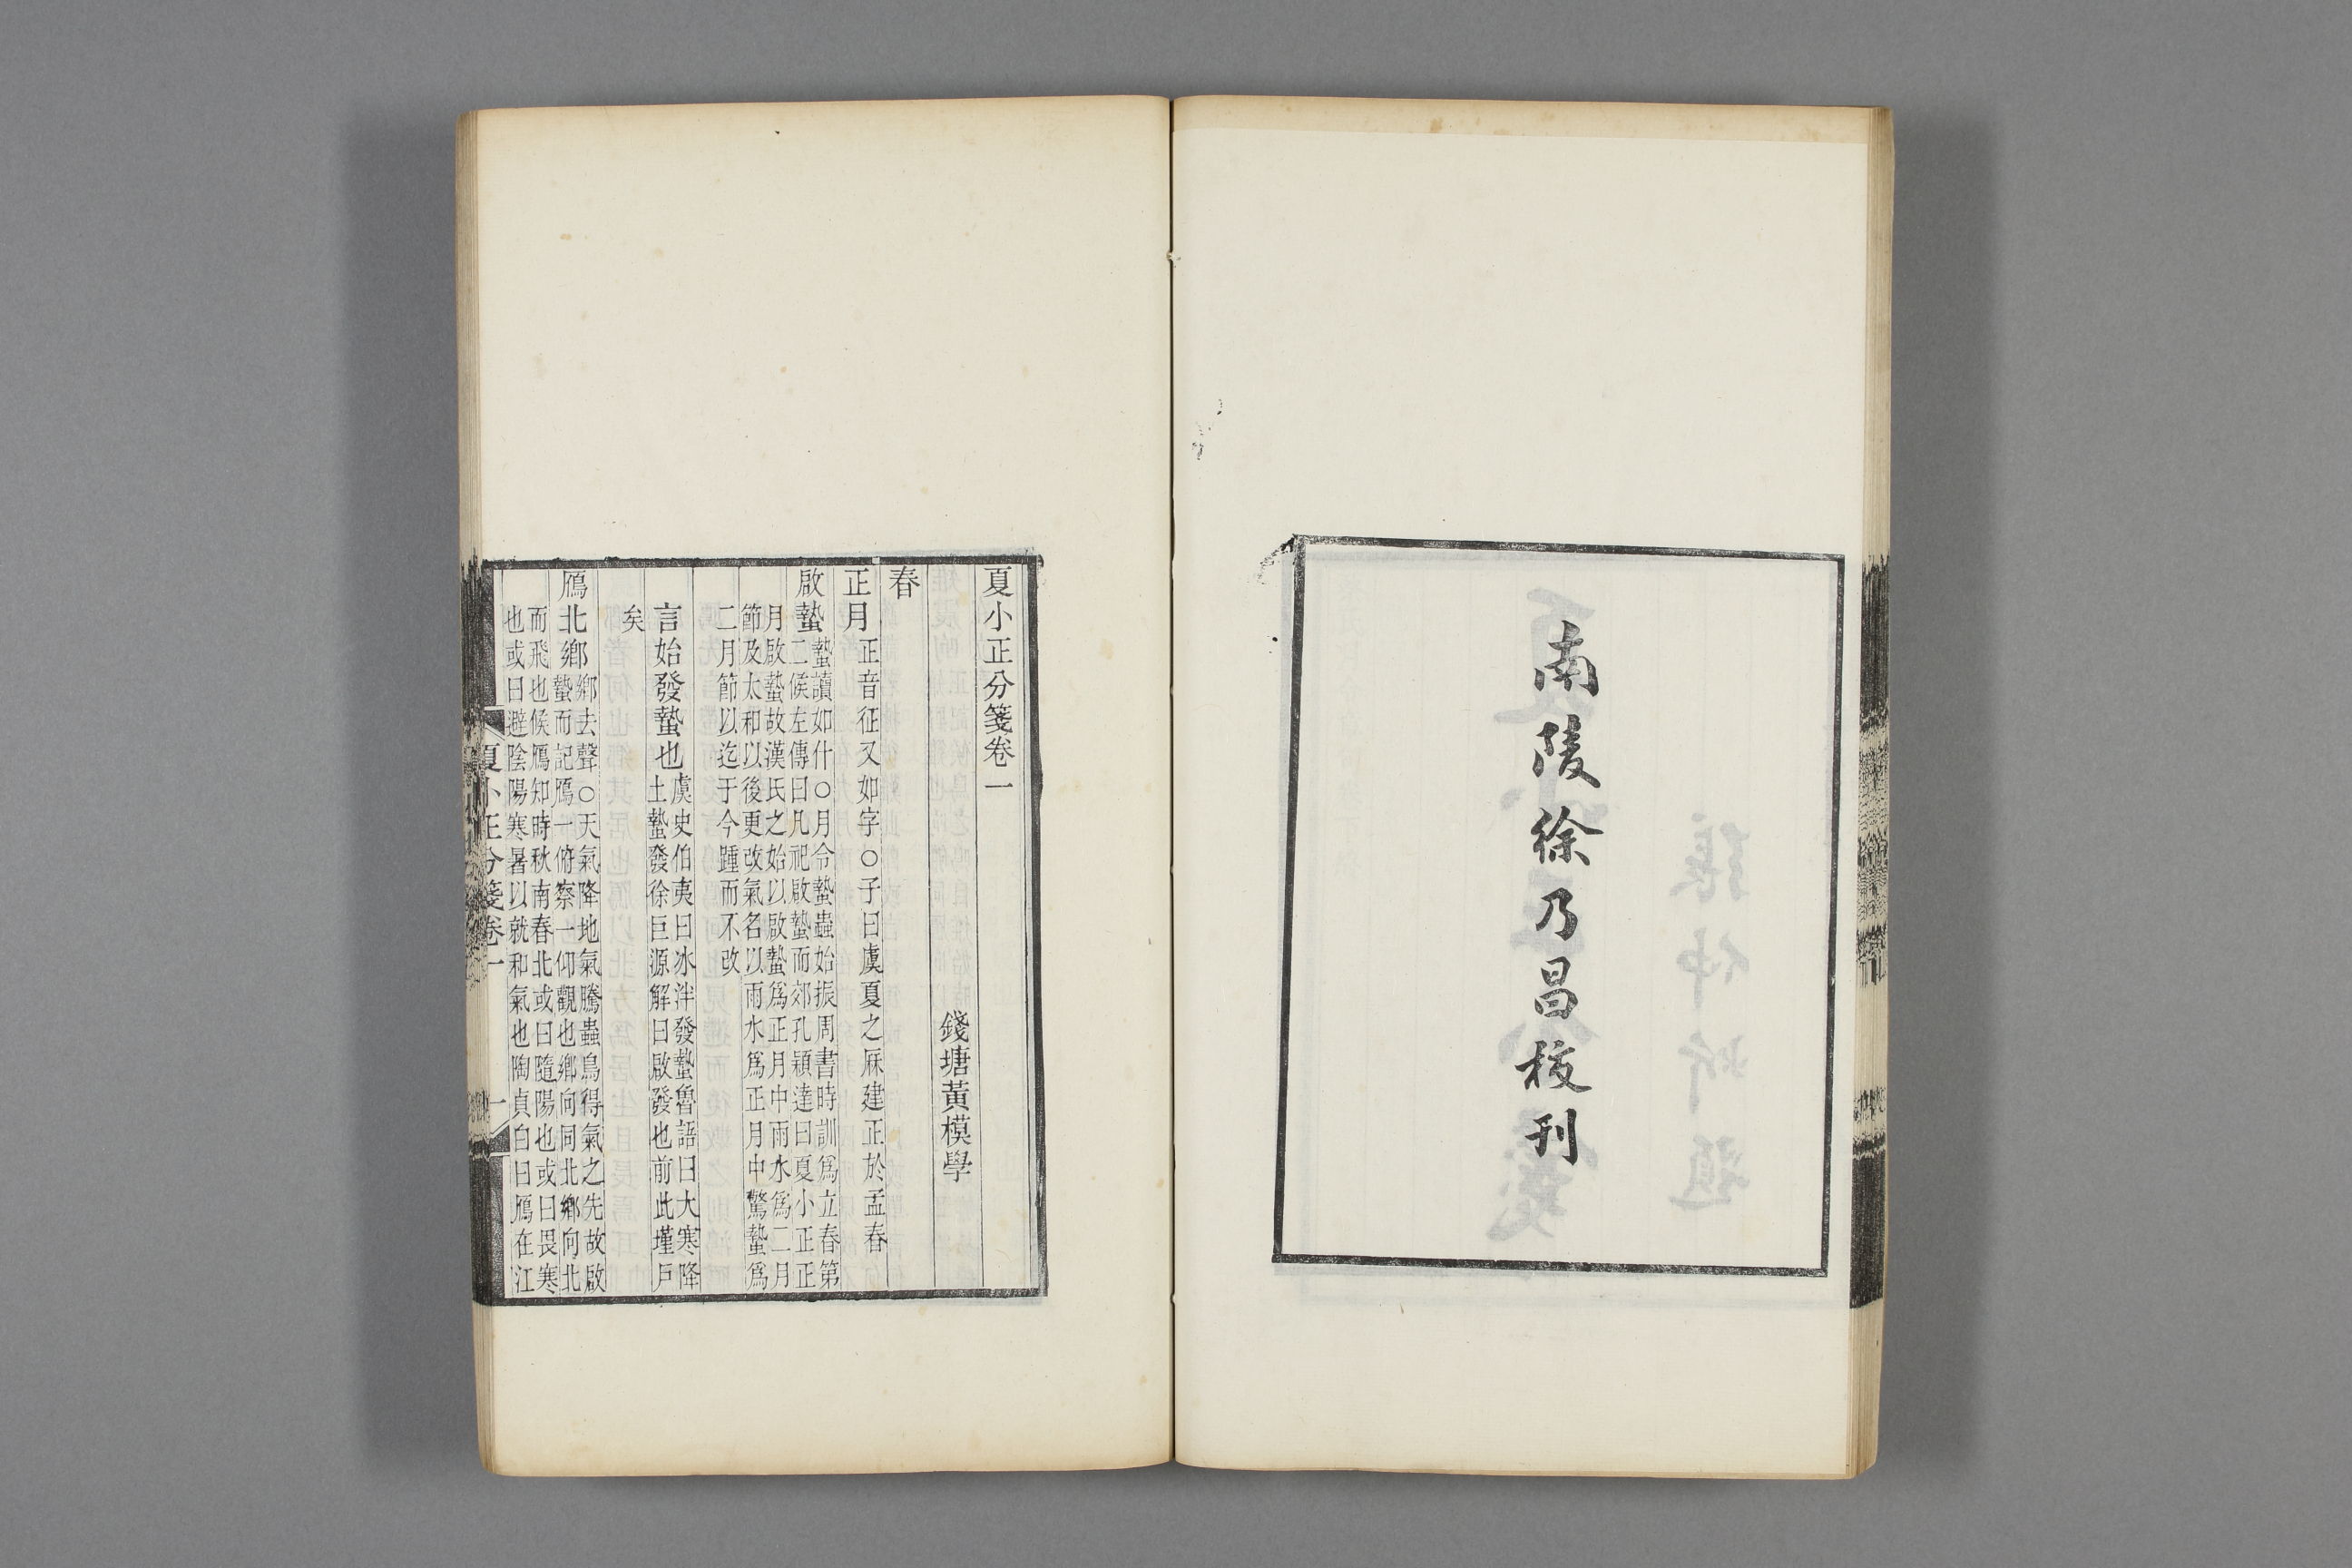 南陵徐乃昌校刊
夏小正分箋卷一
錢塘黃模學
春
正月正音征又如字○子曰虞夏之厤建正於孟春
啟蟄蟄讀如什○月令蟄蟲始振周書時訓爲立春第
二候左傳曰凡祀啟蟄而郊孔穎達曰夏小正正
月啟蟄故漢氏之始以啟蟄爲正月中雨水爲二月
節及太和以後更改氣名以雨水爲正月中驚蟄爲
二月節以迄于今踵而不改
言始發蟄也虞史伯夷曰冰泮發蟄魯語曰大寒降
土蟄發徐巨源解曰啟發也前此墐戶
矣
鴈北鄉鄉去聲○天氣降地氣騰蟲鳥得氣之先故啟
蟄而記鴈一俯察一仰觀也鄉向同北鄉向北
而飛也候鴈知時秋南春北或曰隨陽也或曰畏寒
也或曰避陰陽寒暑以就和氣也陶貞白曰鴈在江
夏小正分箋卷一
一